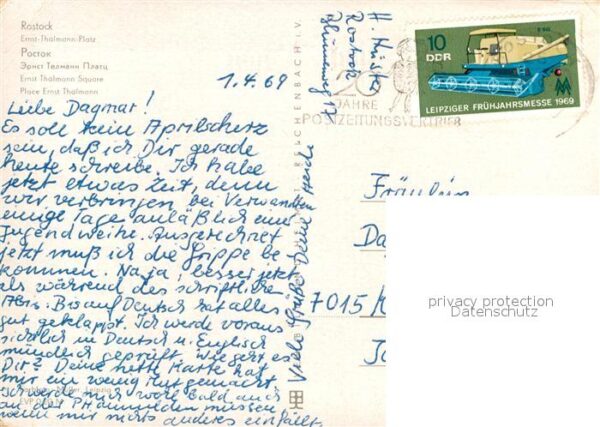 Rostock
Ernst-Thälmann-Platz
Росток
Эрнст Телманн Платц
Ernst Thälmann Square
Place Ernst Thälmann
1.4.69
Liebe Dagmar!
Es soll kein Aprilscherz
sein, daß ich Dir gerade
heute schreibe. Ich habe
jetzt etwas Zeit, denn
wir verbringen bei Verwandten
einige Tage anläßlich einer
Jugendweihe. Ausgerechnet
jetzt muß ich die Grippe be
kommen. Na ja, besser jetzt
als während des schriftlichen
Abis. Bis auf Deutsch hat alles
gut geklappt. Ich werde voraus
sichtlich in Deutsch u. Englisch
mündlich geprüft. Wie geht es
Dir? Deine nette Karte hat
mir ein wenig Mut gemacht.
Ich werde mich wohl bald auch
an der PH anmelden müssen,
wenn mir nichts anderes einfällt.
Viele Grüße Deine
Leipzig
EVP
REICHENBACH I. V.
H.
Rostock
10
DDR
LEIPZIGER FRÜHJAHRSMESSE 1969
20
JAHRE
POSTZEITUNGSVERTRIEB
Fräulein
7015
privacy protection
Datenschutz